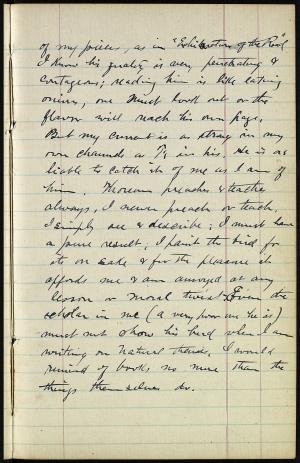 of my pieces, as in "Exhileration of the Road"
I know his quality is very penetrating &
contagious; reading him is like eating
onions, one must look out or the
flavor will reach his own page.
But my current is as strong in my
own channels as T's in his. He is as
liable to catch it of me as I am of
him. Thoreau preaches & teaches
always. I never preach or teach.
I simply see & describe; I must have
a pure result; I paint the bird for
its own sake & for the pleasure it
affords me & am annoyed at any
lesson or moral twist. Even the
scholar in me (a very poor one he is)
must not show his head when I am
writing on natural themes. I would
remind of books no more than the
things themselves do.